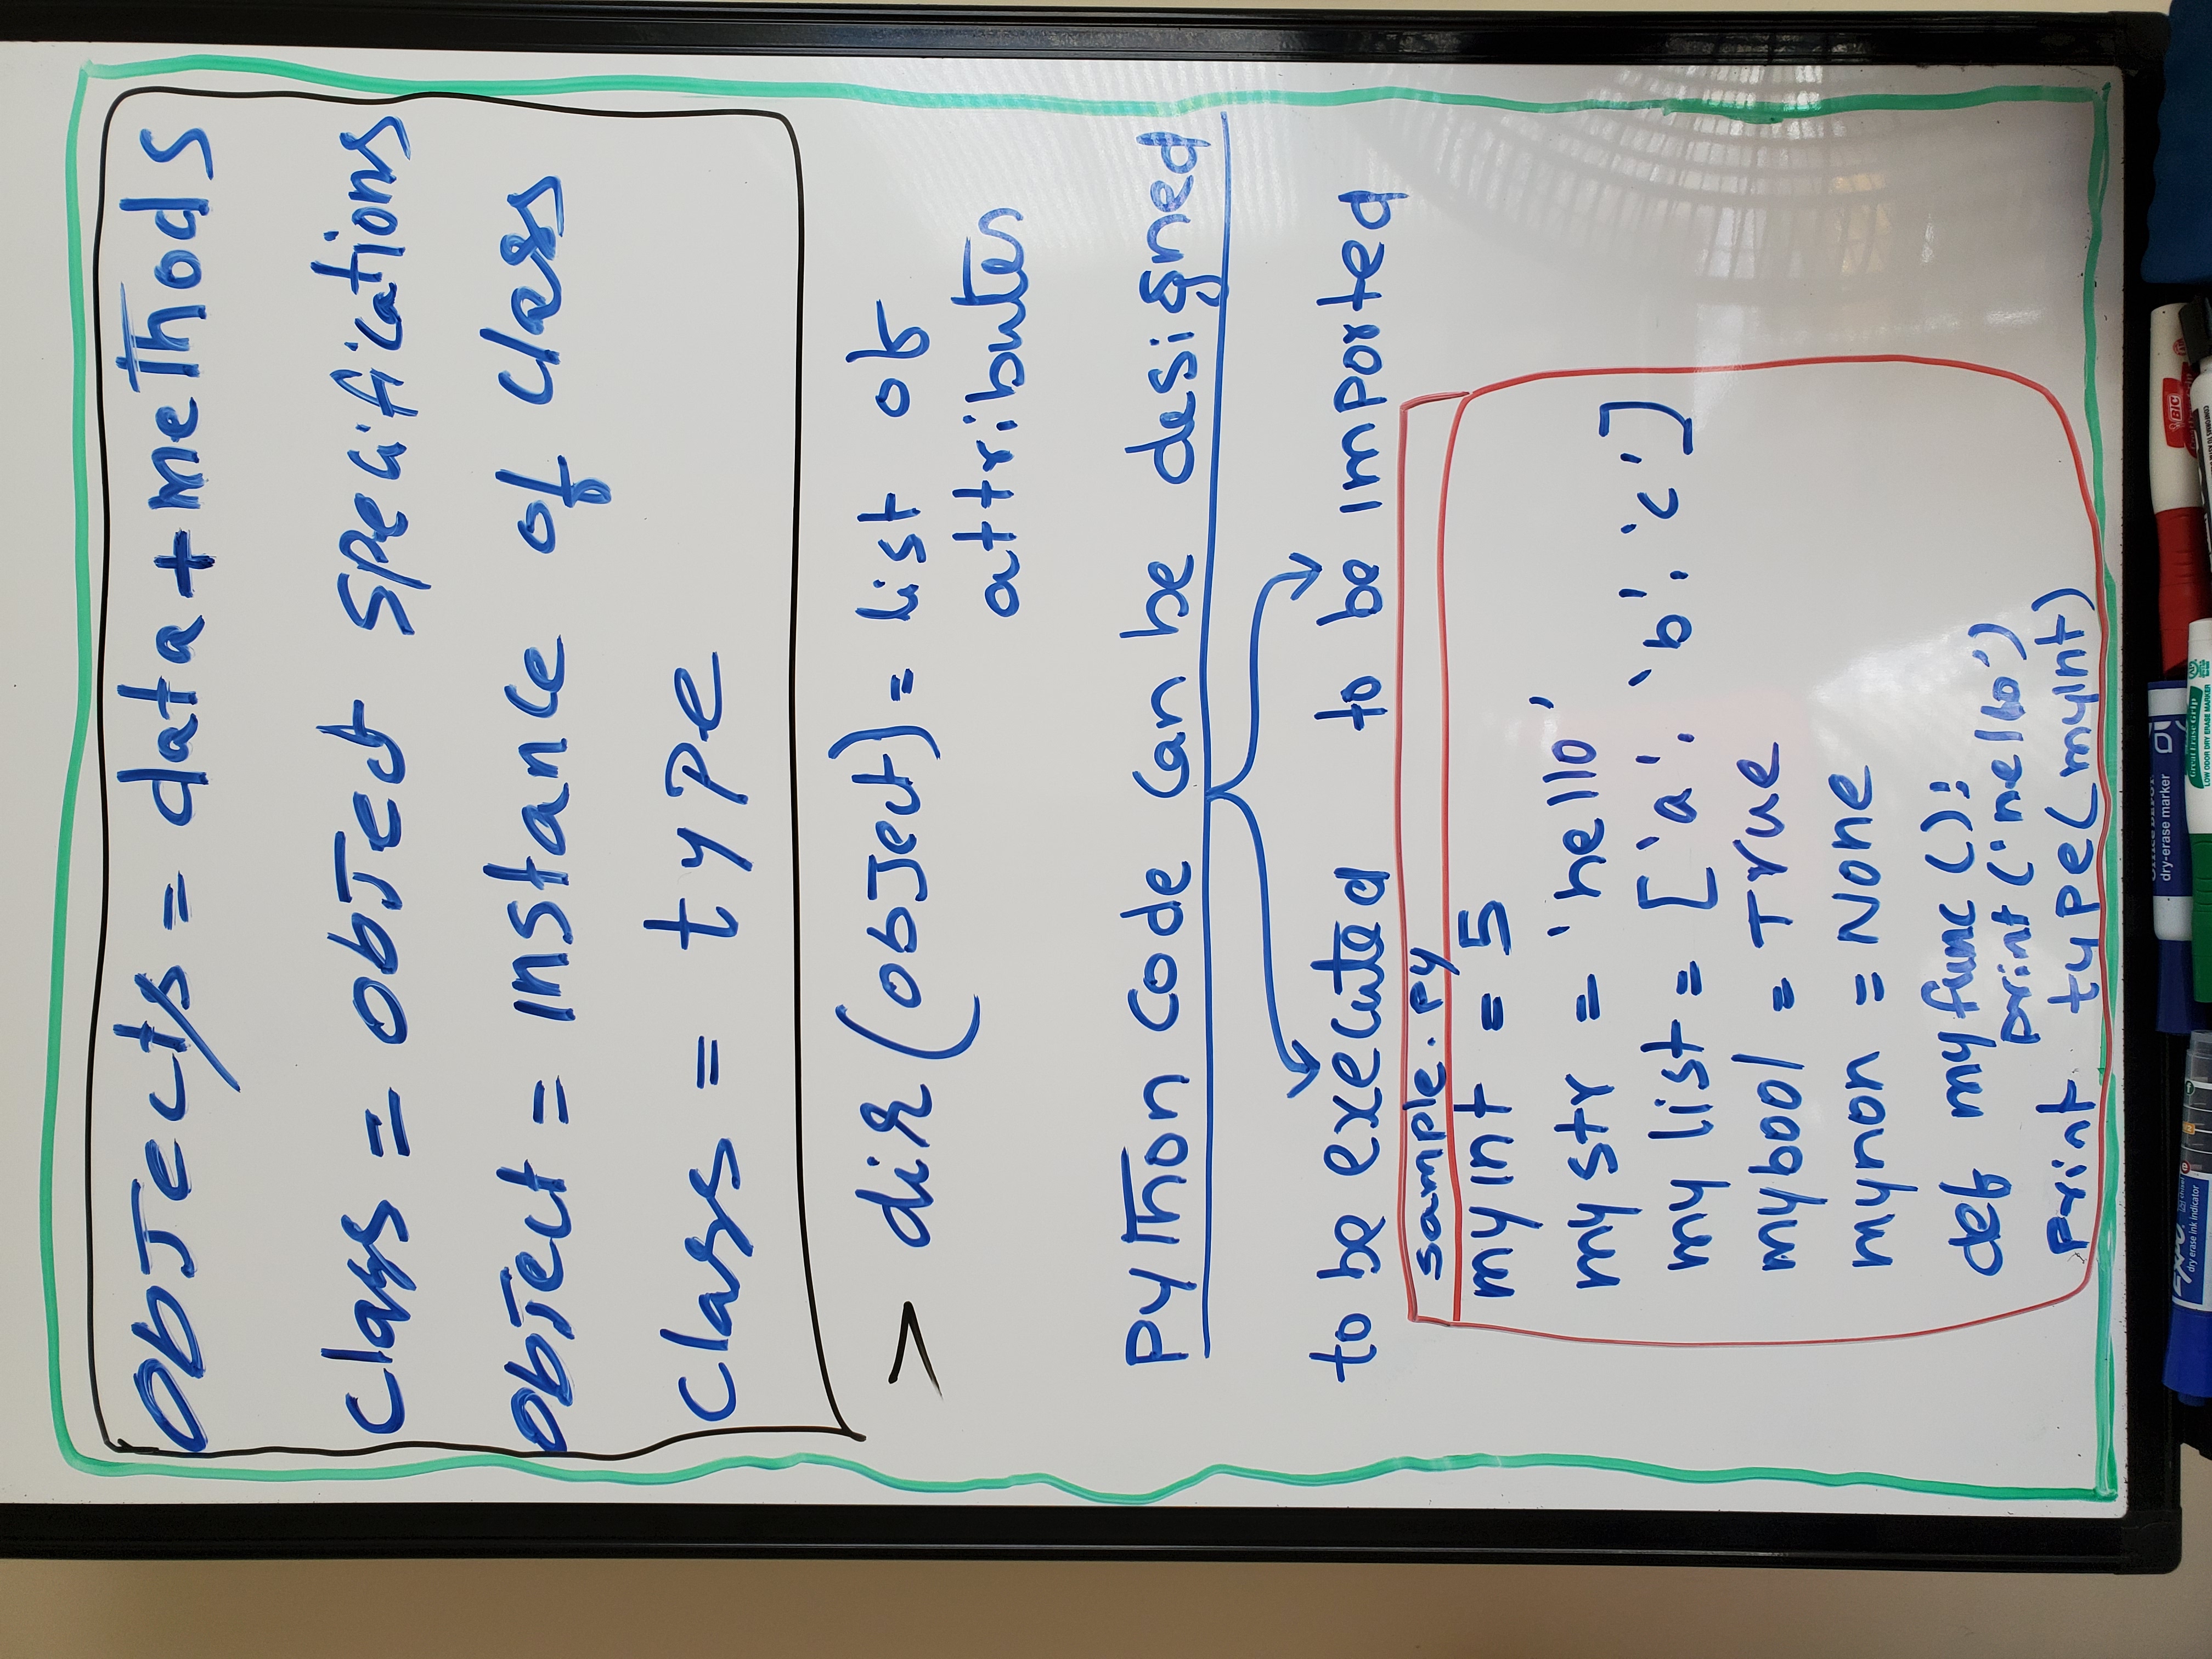 Objects = data + methods
class = object specifications
object = instance of class
class = type
> dir(object) = list of
attributes
Python code can be designed
to be executed to be imported
sample.py
myint = 5
mystr = 'hello'
mylist = ['a', 'b', 'c']
mybool = True
mynon = None
def myfunc():
print('hello')
print type(myint)
OFFICE DEPOT
dry-erase marker
EXPO chisel
dry erase ink indicator
BIC
Great Erase Grip
Great Erase Grip
LOW ODOR DRY ERASE MARKER